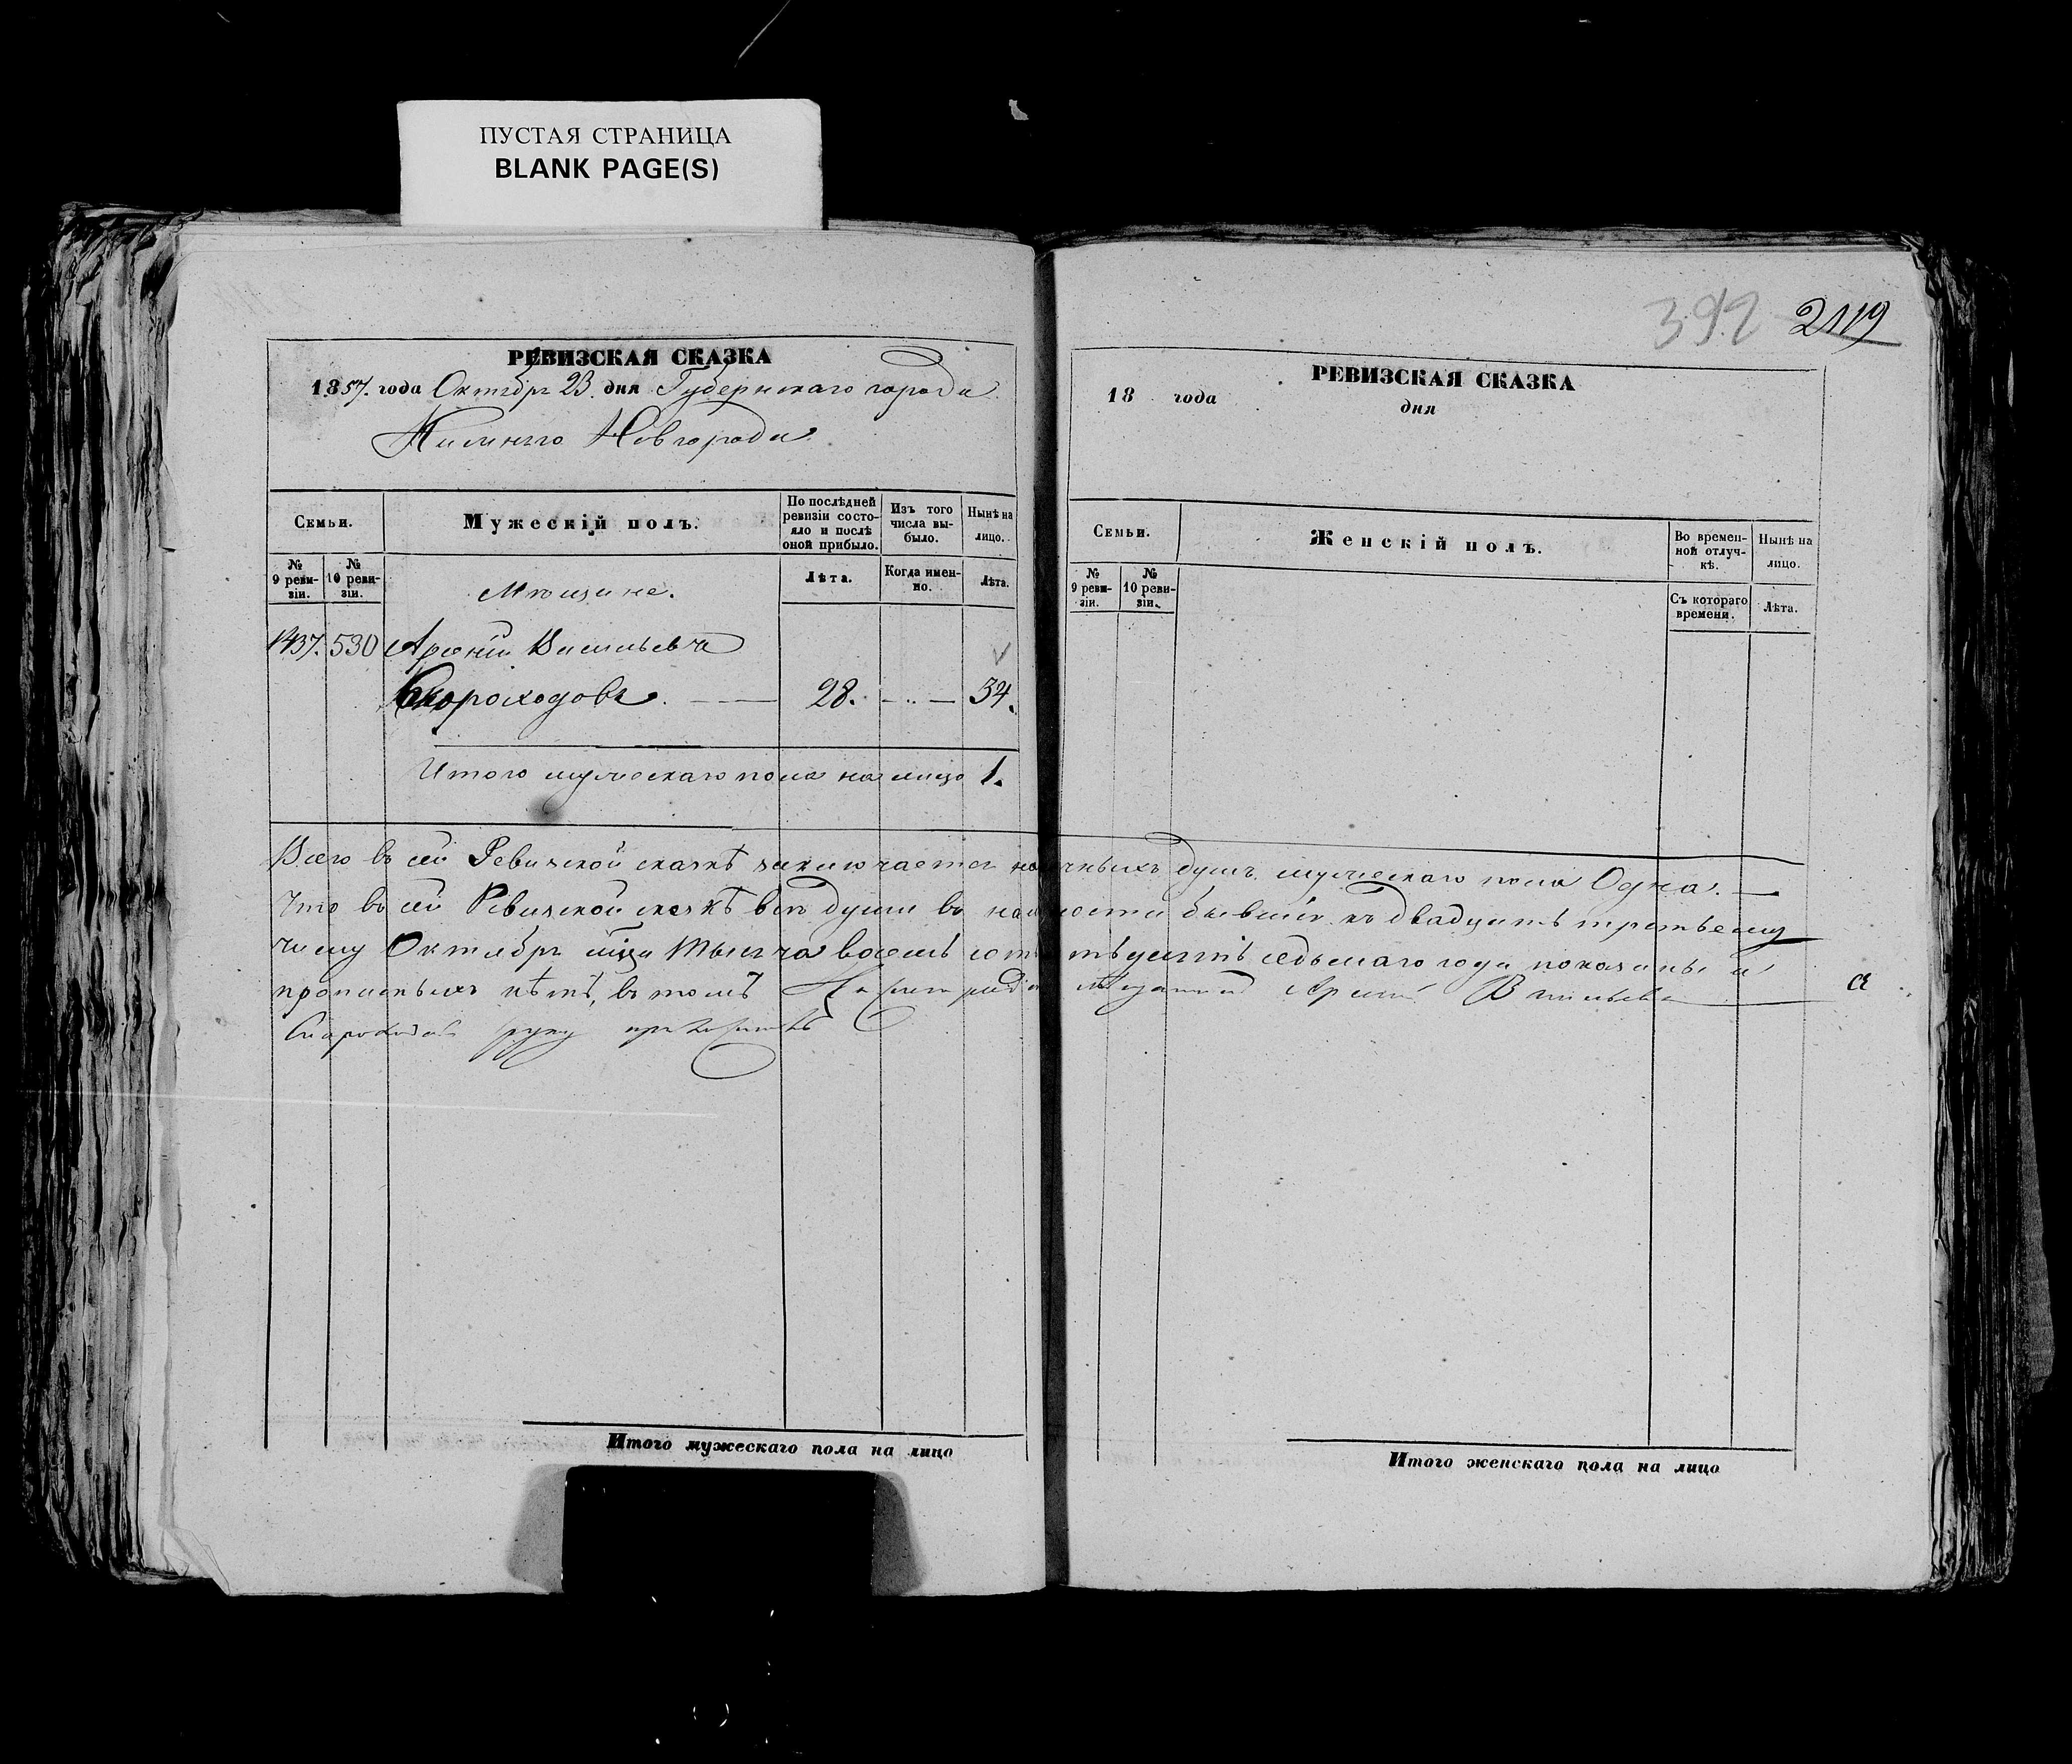 ПУСТАЯ СТРАНИЦА
BLANK PAGE(S)
РЕВИЗСКАЯ СКАЗКА
1857. года Октября 23. дня Губернскаго города
Нижняго Новгорода
Семьи.
Мужескій полъ.
По послѣдней
ревизіи состо-
яло и послѣ
оной прибыло.
Изъ того
числа вы-
было.
Нынѣ на
лицо.
№
9 реви-
зіи.
№
10 реви-
зіи.
Мѣщане.
Лѣта.
Когда имен-
но.
Лѣта.
1437. 530 Арсеній Васильевъ
Скороходовъ. 28. 34.
Итого мужескаго пола на лицо 1.
Итого мужескаго пола на лицо
392 2119
РЕВИЗСКАЯ СКАЗКА
18 года
дня
Семьи.
Женскій полъ.
Во времен-
ной отлуч-
кѣ.
Нынѣ на
лицо.
№
9 реви-
зіи.
№
10 реви-
зіи.
Съ котораго
времени.
Лѣта.
Всего въ сей Ревизской сказкѣ заключается наличныхъ душъ мужескаго пола Одна.
Что въ сей Ревизской сказкѣ всѣ души въ наличности бывшія къ двадцать третьему
числу Октября мѣсяца тысяча восемь сотъ пятьдесятъ седьмаго года показаны и
прописныхъ нѣтъ, въ томъ Арсеній Васильевъ
Скороходовъ руку приложилъ
Итого женскаго пола на лицо